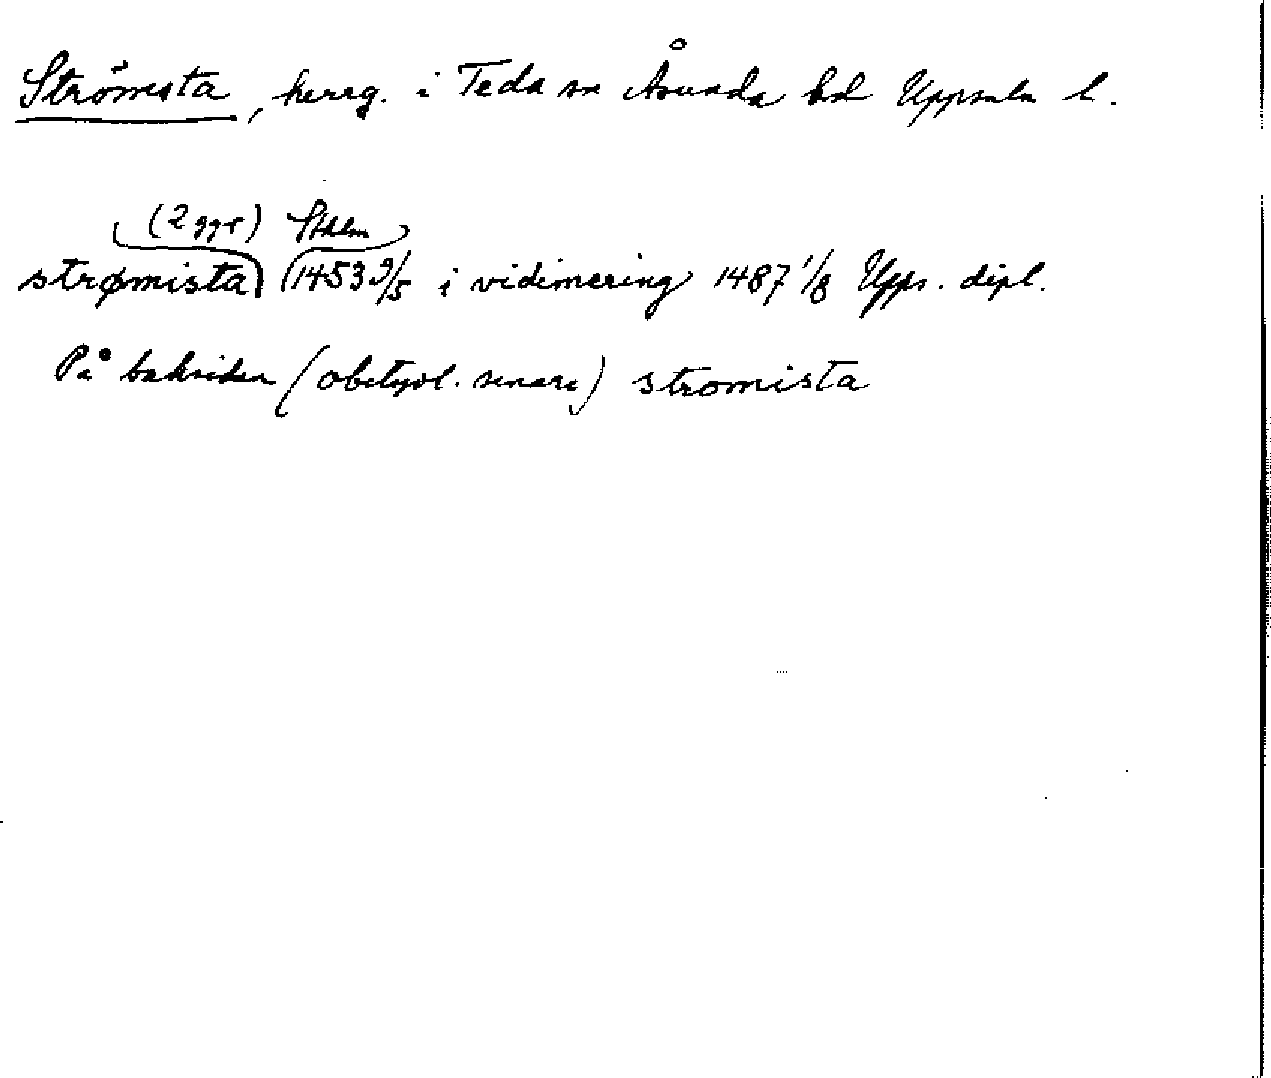 Strömsta, herrg. i Teda sn Åsunda hd Uppsala l.
(2 ggr) Sthlm
strømista 1453 9/5 i vidimering 1487 1/8 Upps. dipl.
På baksidan (obetydl. senare) stromista